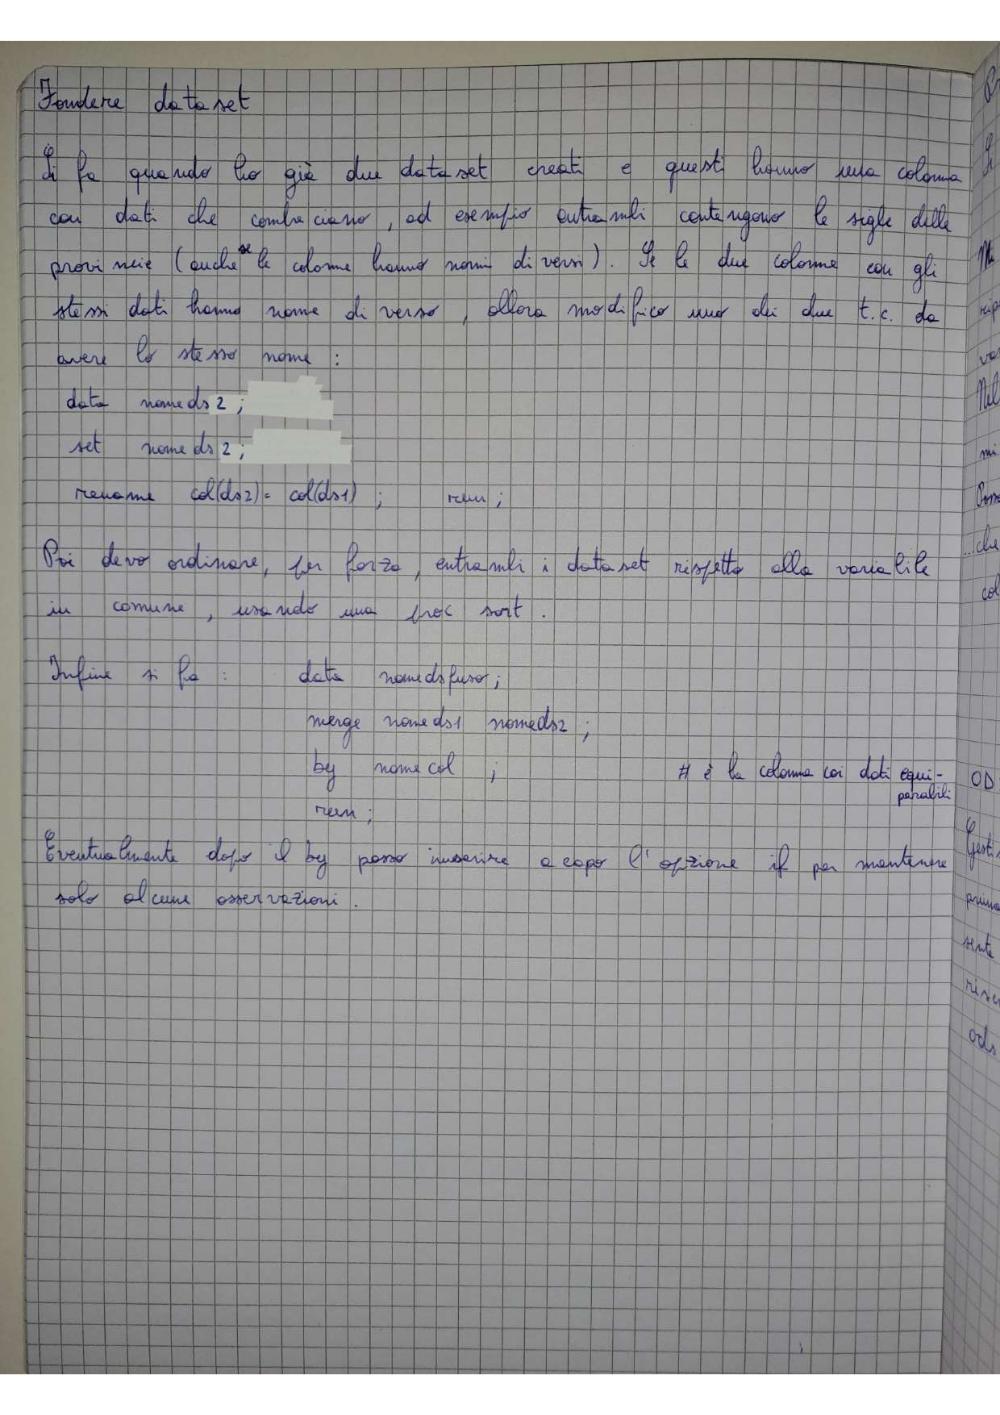 Fondere dataset
Si fa quando ho già due dataset creati e questi hanno una colonna
con dati che combaciano, ad esempio entrambi contengono le sigle delle
provincie (anche se le colonne hanno nomi diversi). Se le due colonne con gli
stessi dati hanno nome diverso, allora modifico uno dei due t.c. da
avere lo stesso nome :
data nomeds2 ;
set nomeds2 ;
rename col(ds2)= col(ds1) ; run ;
Poi devo ordinare, per forza, entrambi i dataset rispetto alla variabile
in comune, usando una proc sort.
Infine si fa : data nomedsfuso;
merge nomeds1 nomeds2 ;
by nomecol ; # è la colonna coi dati equi-
parabili
run ;
Eventualmente dopo il by posso inserire a capo l'opzione if per mantenere
solo alcune osservazioni.
OD
col
ods